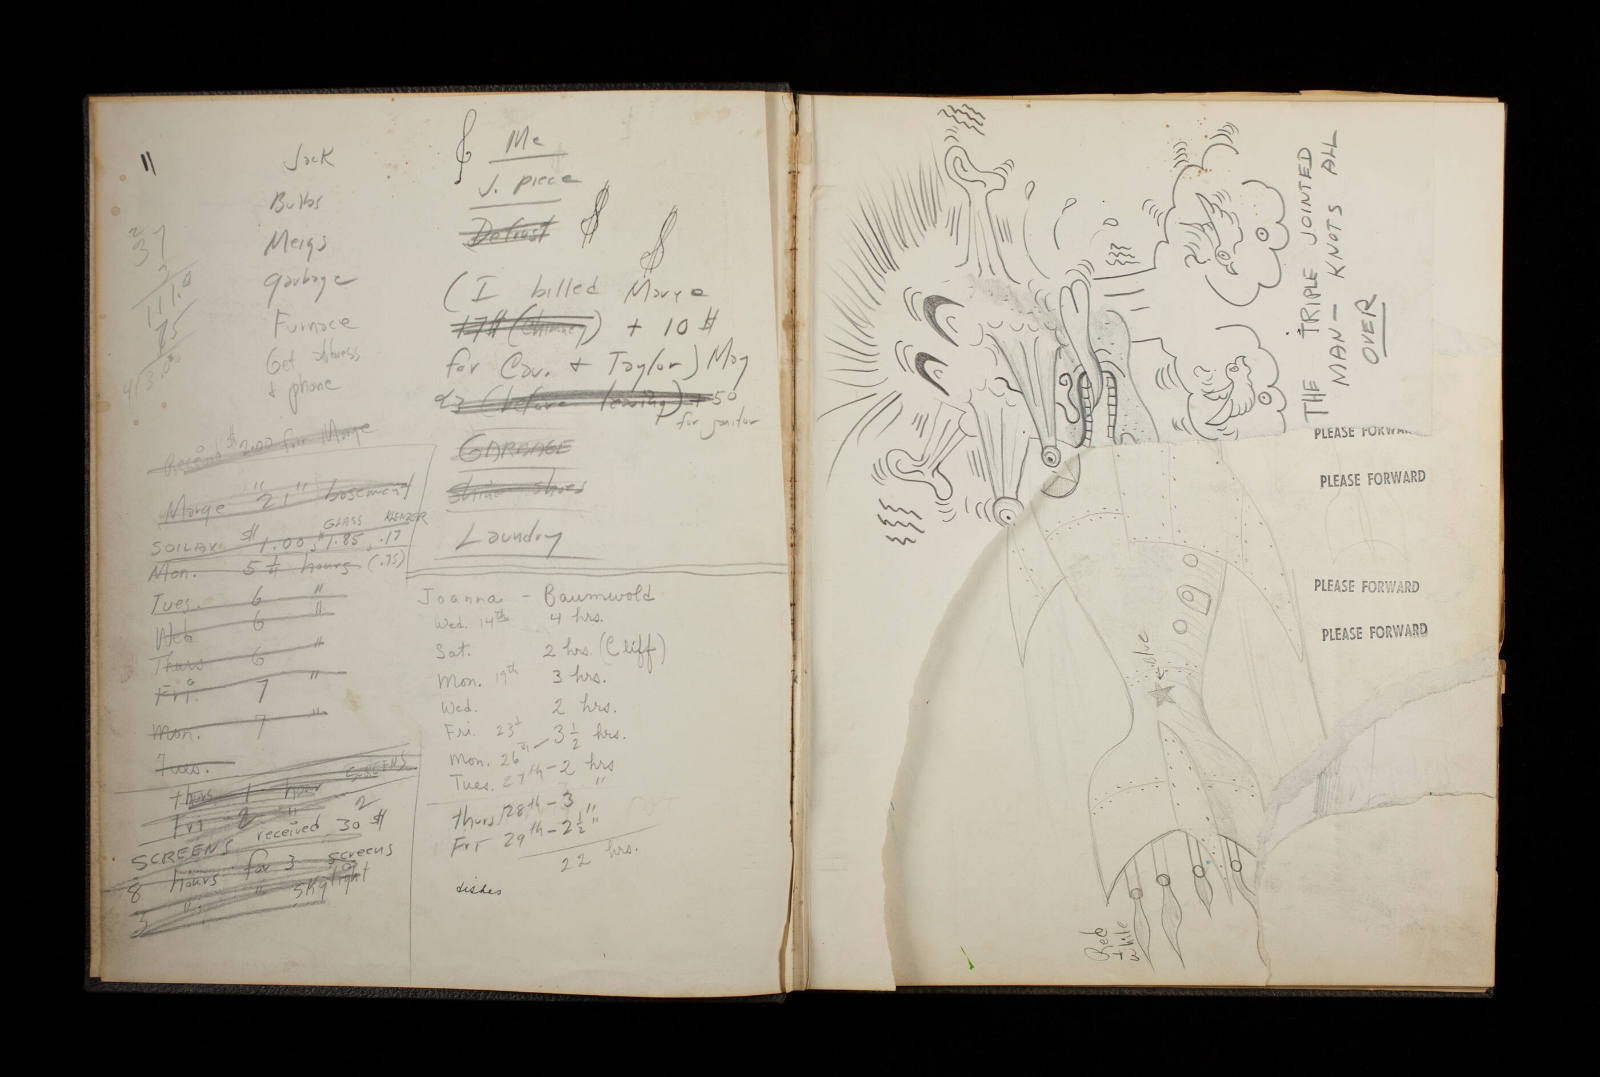 Jack
Bulbs
Meigs
Garbage
Furnace
Get address
+ phone
2
37
3
111.0
75
4/3.00
$2.00 for Marge
Marge "21" basement
GLASS KLENZER
SOILAX $1.00, $1.85, .17
Mon. 5 1/4 hours (.75)
Tues. 6 "
Wed 6 "
Thurs 6 "
Fri. 7 "
Mon. 7 "
Tues.
Thurs 1 hour SCREENS
Fri 2 " 2
SCREENS received 30 $
8 hours for 3 screens
3 " " skylight
Me
J. piece
Defrost
(I billed Marge
17$ (chimney) + 10 $
for Cav. + Taylor) May
23 (before leaving) + 50
for janitor
GARBAGE
Shine shoes
Laundry
Joanna - Baumwold
Wed. 14th 4 hrs.
Sat. 2 hrs. (Cliff)
Mon. 19th 3 hrs.
Wed. 2 hrs.
Fri. 23d 3 1/2 hrs.
Mon. 26th
Tues. 27th - 2 hrs
Thurs 28th - 3 "
Fri 29th - 2 1/2 "
22 hrs.
dishes
THE TRIPLE JOINTED
MAN - KNOTS ALL
OVER
PLEASE FORWAR
PLEASE FORWARD
PLEASE FORWARD
PLEASE FORWARD
Blue
Red
+
white